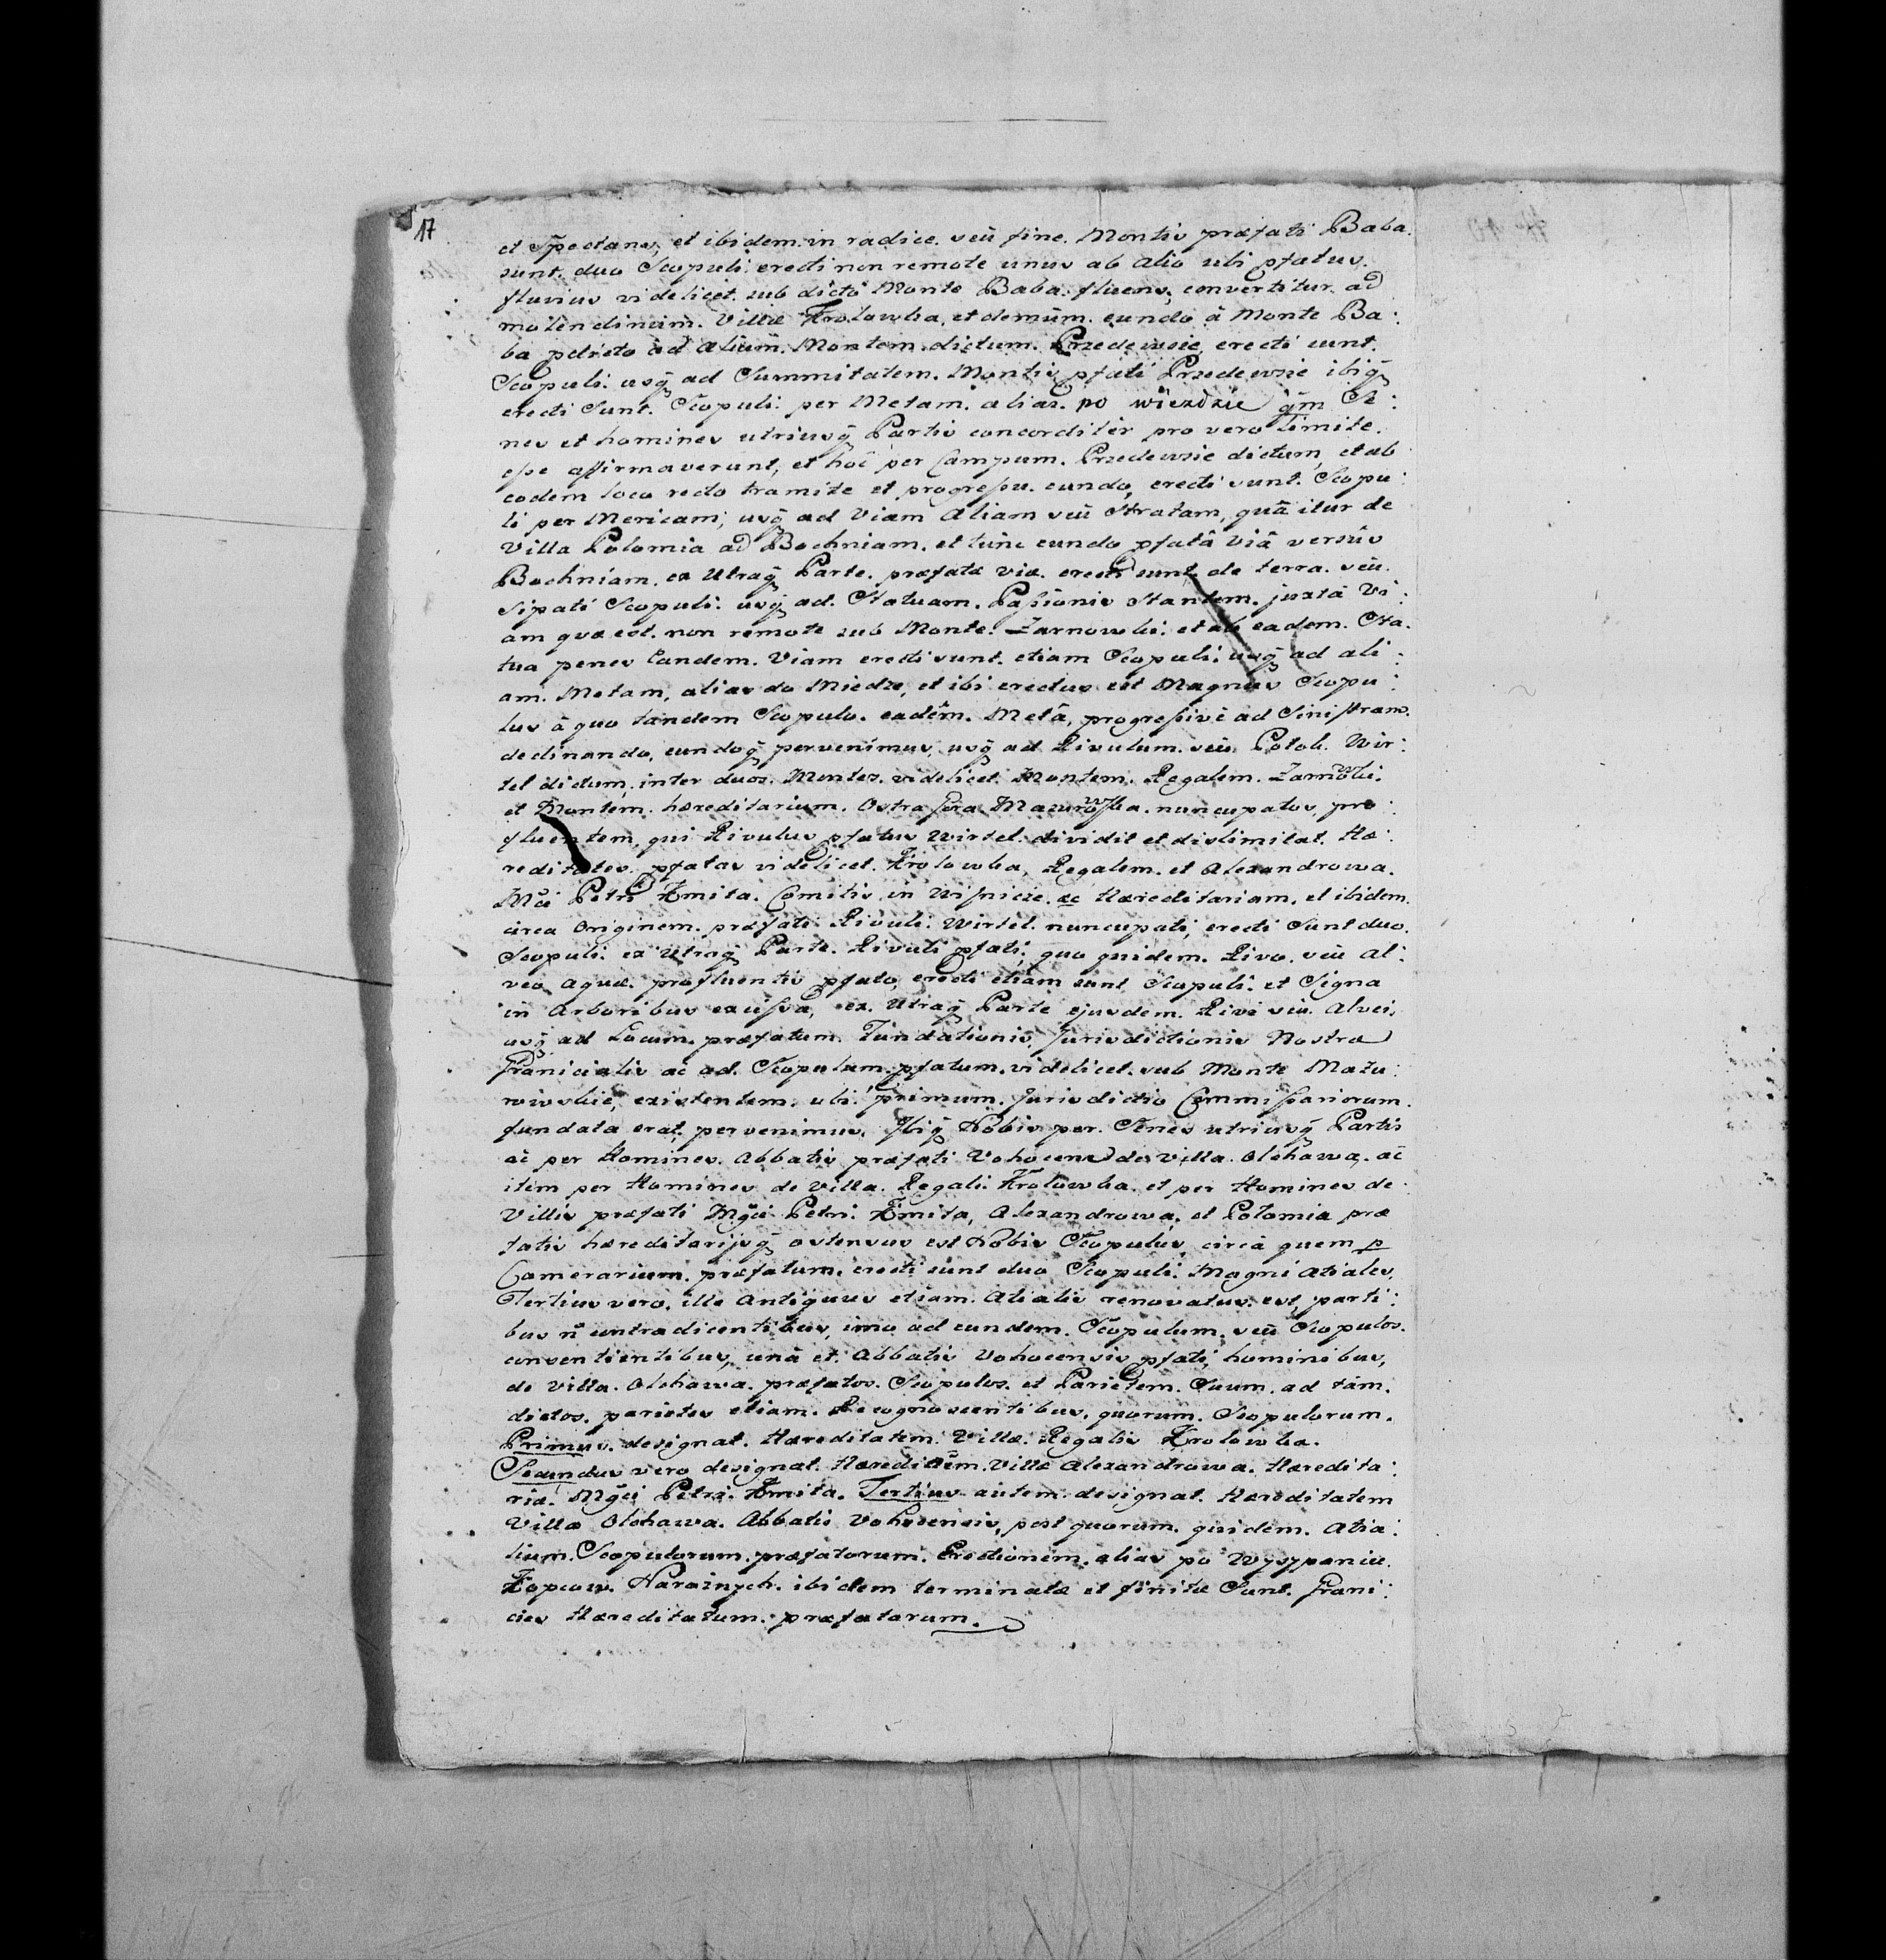 17
et Spectans, et ibidem in radice. seũ fine. Montis præfati Baba.
sunt. duo Scopuli. erecti non remote unus ab alio ubi pfatus.
fluvius videlicet. sub dicto Monte Baba. fluens, convertitur. ad
molendinum. Villæ Krolowka, et demum. eundo à Monte Ba:
ba pdicto ad alium. Montem. dictum. Przedewsie, erecti sunt.
Scopuli. usq̃ ad Summitatem. Montis pfati Przedewsie ibiq̃
erecti Sunt. Scopuli: per Metam. alias. po wiezdzie q̃m Se:
nes et homines utriusq̃ Partis concorditer pro vero limite.
esse affirmaverunt, et hoc per Campum. Przedewsie dictum, et ab
eodem loco recto tramite et progressu. eundo, erecti sunt. Scopu:
li per Mericam; usq̃ ad Viam aliam seũ Stratam, quâ itur de
Villa Polomia ad Bochniam. et tunc eundo pfatâ viâ versûs
Bochniam. ex Utraq̃ Parte. præfatæ viæ. erecti sunt de terra. seũ.
sipati Scopuli: usq̃ ad. Statuam. Passionis stantem. juxta Vi:
am quæ est. non remote sub Monte. Zarnowki. et ab eadem. Sta.
tua penes Eandem. Viam erecti sunt. etiam Scopuli. usq̃ ad ali:
am. Metam, alias do Miedze, et ibi erectus est Magnus Scopu:
lus à quo tandem Scopulo. eadẽm. Metâ, progressivè ad Sinistram.
declinando, eundoq̃ pervenimus, usq̃ ad Rivulum. seũ Potok. Wir:
tel dictum, inter duos. Montes. videlicet. Montem. Regalem. Zarnowki.
et Montem. hæreditarium. Ostra Gora Mazurowska. nuncupatos, pro:
fluentem, qui Rivulus pfatus Wirtel. dividit et dislimitat. Hæ:
reditates. pfatas videlicet. Krolowka, Regalem. et Alexandrowa.
Mci Petri Kmita. Comitis in Wisnicze. ac Hæreditariam. et ibidem.
circa Originem. præfati Rivuli. Wirtel. nuncupati, erecti Sunt duo.
Scopuli. ex Utraq̃ Parte. Rivuli pfati, quo quidem. Rivo. seũ al:
veo aquæ. profluentis pfato, erecti etiam sunt Scopuli. et Signa
in Arboribus excissa, ex. Utraq̃ Parte ejusdem. Rivi seũ. Alvei,
usq̃ ad Locum. præfatum. Fundationis, Jurisdictionis Nostræ
Granicialis ac ad. Scopulum. pfatum. videlicet. sub Monte Mazu:
rowskie, existentem. ubi. primum. Jurisdictio Commissariorum.
fundata erat, pervenimus. Ibiq̃ Nobis per. Senes utriusq̃ Partis
ac per Homines. Abbatis præfati Vohocens de Villa. Olchawa. ac
item per Homines de Villa. Regali. Krolowka. et per Homines de
Villis præfati Mg̃ci Petri. Kmita, Alexandrowa, et Polomia præ
fatis hæreditarijsq̃ ostensus est Nobis Scopulus, circa quem p
Camerarium. præfatum. erecti sunt duo Scopuli. Magni Aciales,
Tertius vero. ille Antiquus etiam. Acialis renovatus. est, parti:
bus ñ contradicentibus, imo ad eundem. Scopulum. seũ Scopulos.
consentientibus, unà et. Abbatis Vohocensis pfati, hominibus,
de Villa. Olchawa. præfatos. Scopulos. et Parietem. Suum. ad tam.
dictos. parietes etiam. Recognoscentibus, quorum. Scopulorum.
Primus. designat. Hæreditatem. Villæ. Regalis Krolowka.
Secundus vero designat. Hæreditatẽm. Villæ Alexandrowa. Hæredita:
riæ. Mg̃ci Petri. Kmita. Tertius autem designat. Hæreditatem
Villæ Olchawa. Abbatis Vohocensis, post quorum. quidem. Acia:
lium. Scopulorum. præfatorum. Erectionem. alias po Wysypaniu.
Kopcow. Narożnych. ibidem terminatæ et finitæ Sunt. Grani:
cies Hæreditatum. præfatarum.